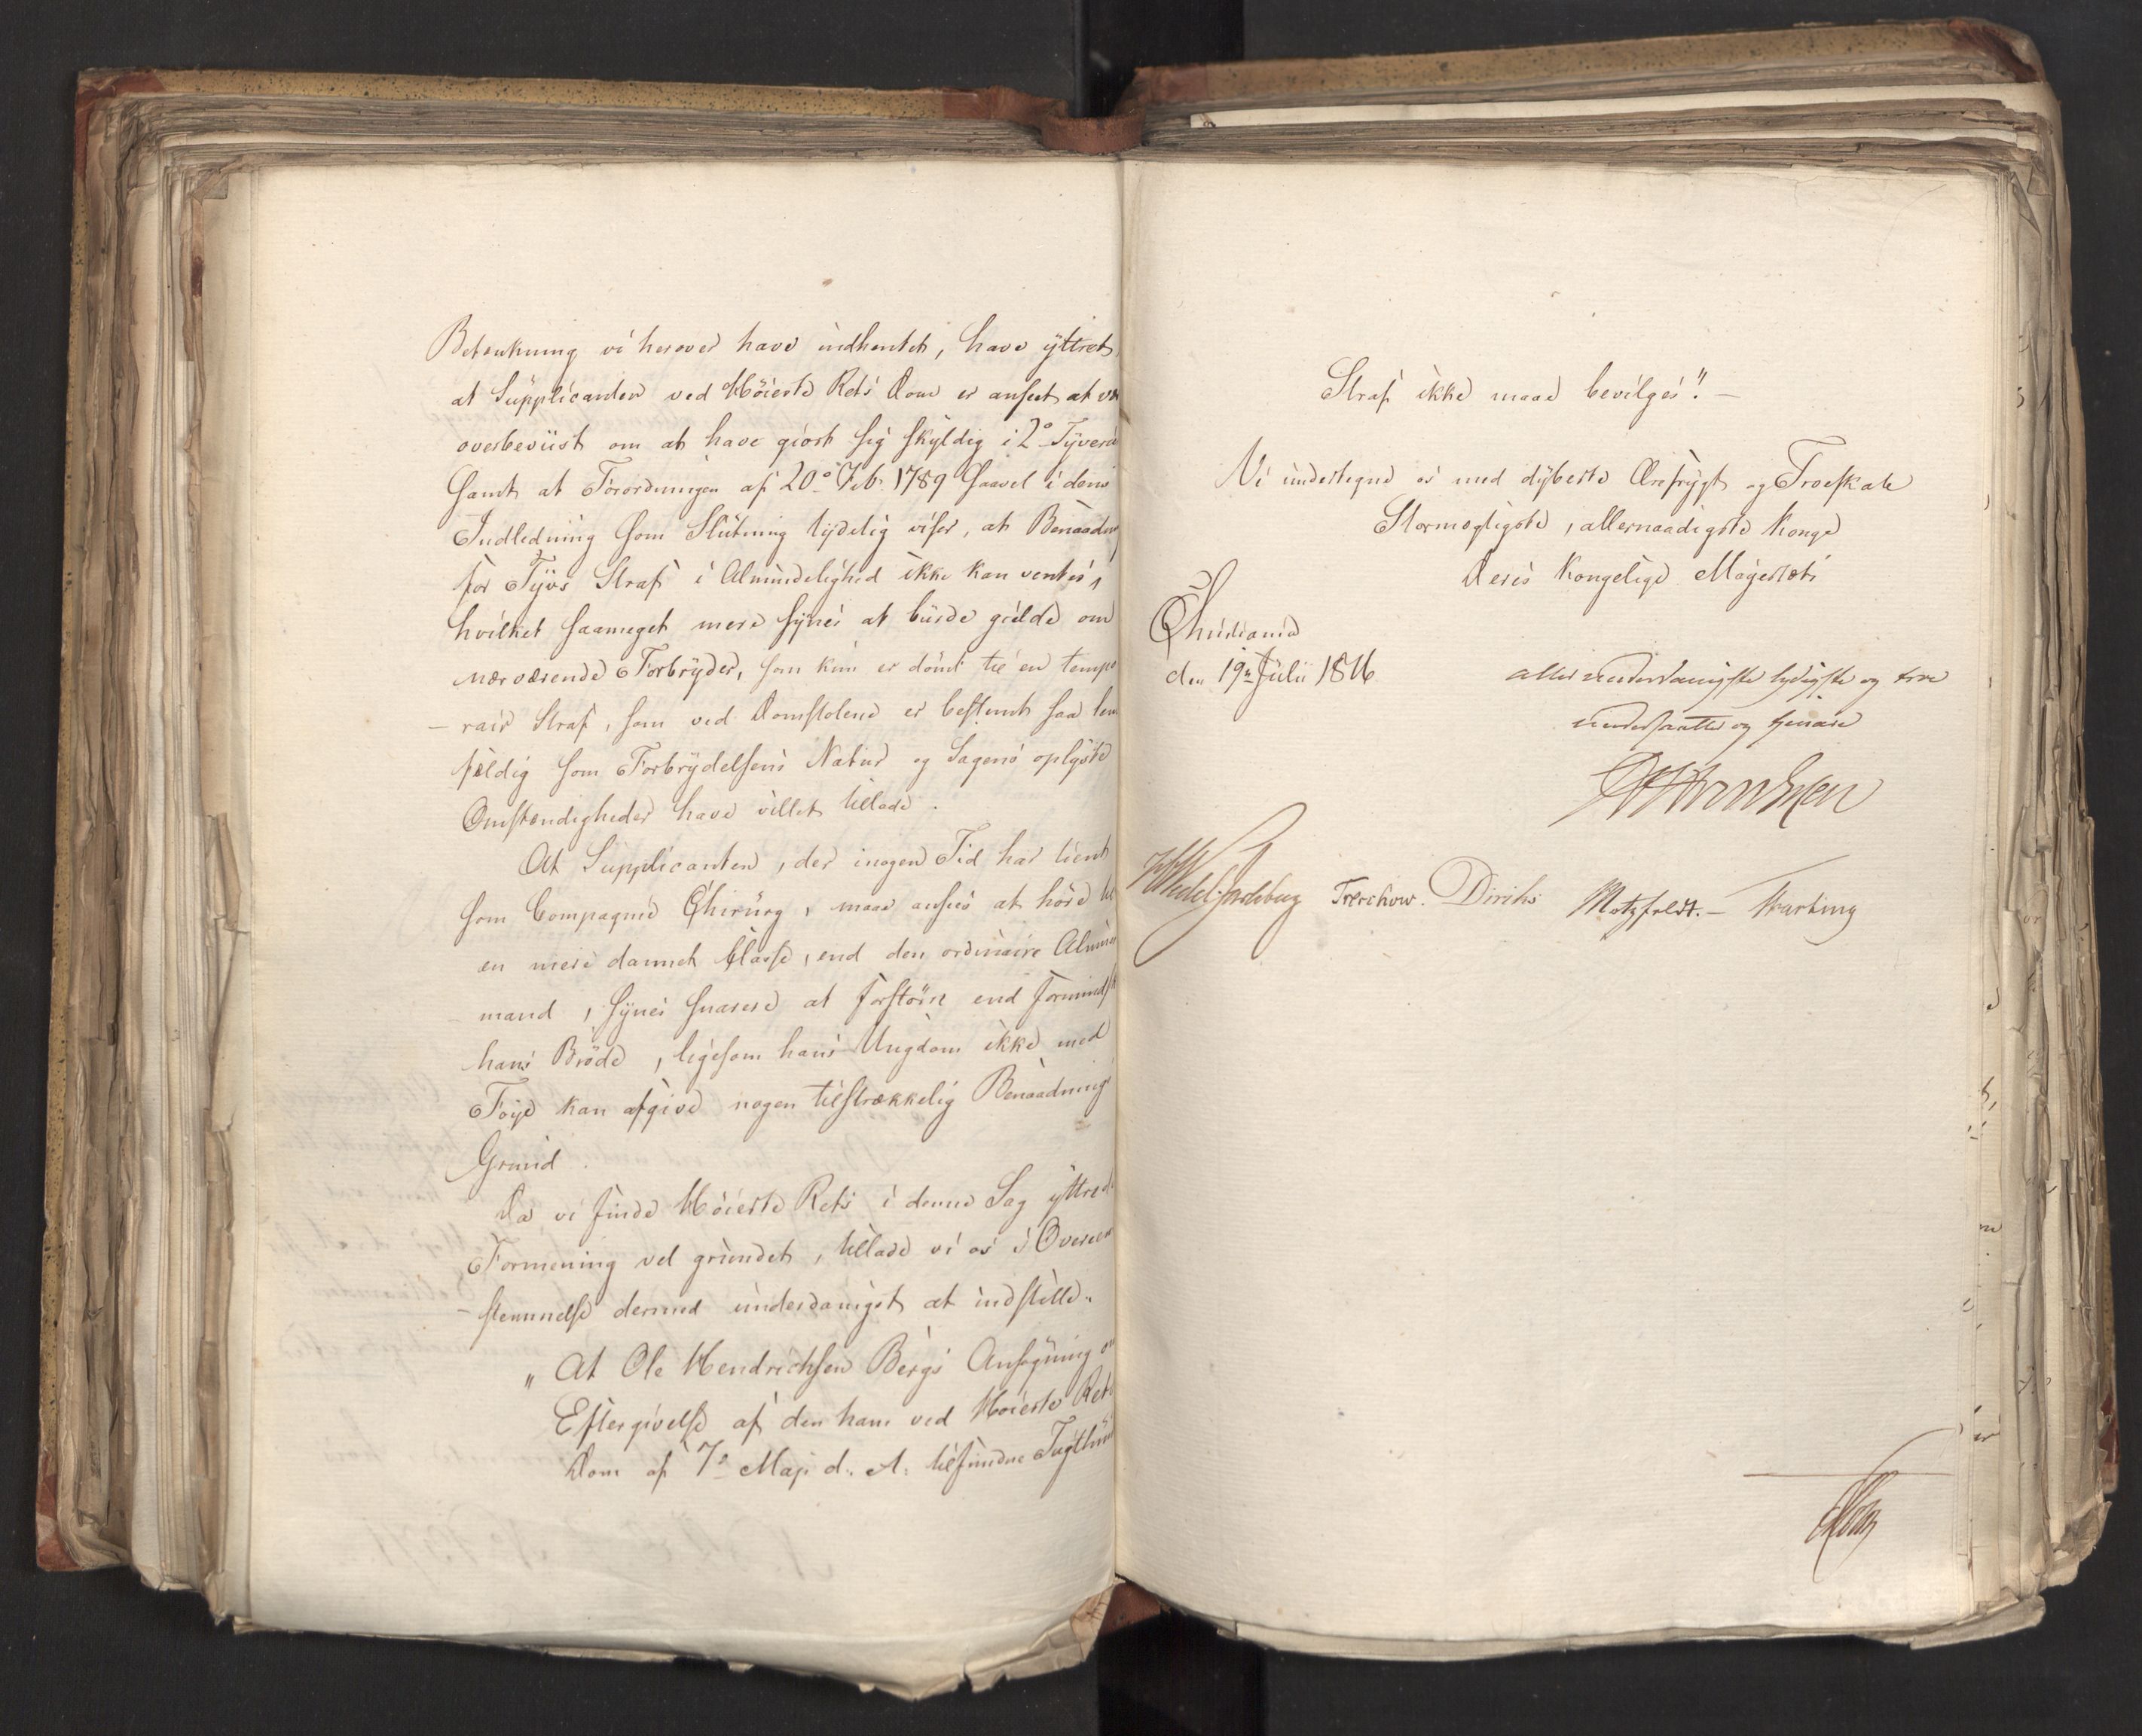 Betænkning vi herover have indhentet, have yttret
at Supplicanten ved Høieste Rets Dom er anseet at væ
overbeviist om at have giort sig skyldig i 2º Tyverie
samt at Forordningen af 20º Feb. 1789 saavel i dens
Indledning som Slutning tydelig viser, at Benaadning
for Tyvs Straf i Almindelighed ikke kan ventes,
hvilket saameget mere synes at burde gielde om
nærværende Forbryder, som kun er dömt til en tempo
- rair Straf, som ved Domstolene er bestemt saa lem
fældig som Forbrydelsens Natur og Sagens oplyste
Omstændigheder have villet tillade.
At Supplicanten, der i nogen Tid har tient
som Compagnie Chirurg, maae ansees at höre til
en mere dannet Classe, end den ordinaire Almue
- mand, synes snarere at forstörre end formindske
hans Bröde, ligesom hans Ungdom ikke med
Föye kan afgive nogen tilstrækkelig Benaadnings
Grund.
Da vi finde Höieste Rets i denne Sag yttrede
Formening vel grundet, tillade vi os i Overeens
- stemmelse dermed underdanigst at indstille.
„ At Ole Hendrichsen Bergs Ansøgning om
Eftergivelse af den ham ved Höieste Rets
Dom af 7º Maji d. A. tilfundne Tugthuus
Straf ikke maae bevilges". -
Vi undertegne os med dybeste Ærefrygt og Troeskab
Stormægtigste, allernaadigste Konge
Deres Kongelige Majestæts
Christiania
den 19n Julii 1816
allerunderdanigste lydigste og troe
undersaatter og tjenere
HWedel Jarlsberg Treschow. Diriks Motzfeldt. - Krarting